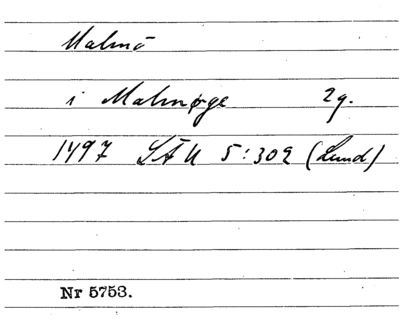 Malmö
i Malmøge 2g.
1497 SÄU 5:302 (Lund)
Nr 5753.